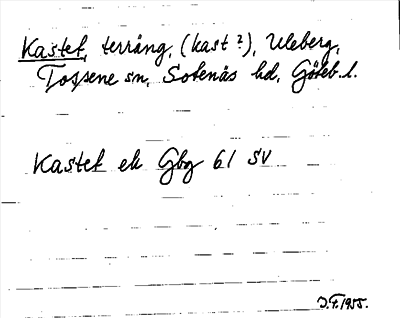 Kastet, terräng, (kast 2), Uleberg,
Tossene sn, Sotenäs hd, Göteb. l.
Kastet ek Gbg 61 SV
J.F. 1955.